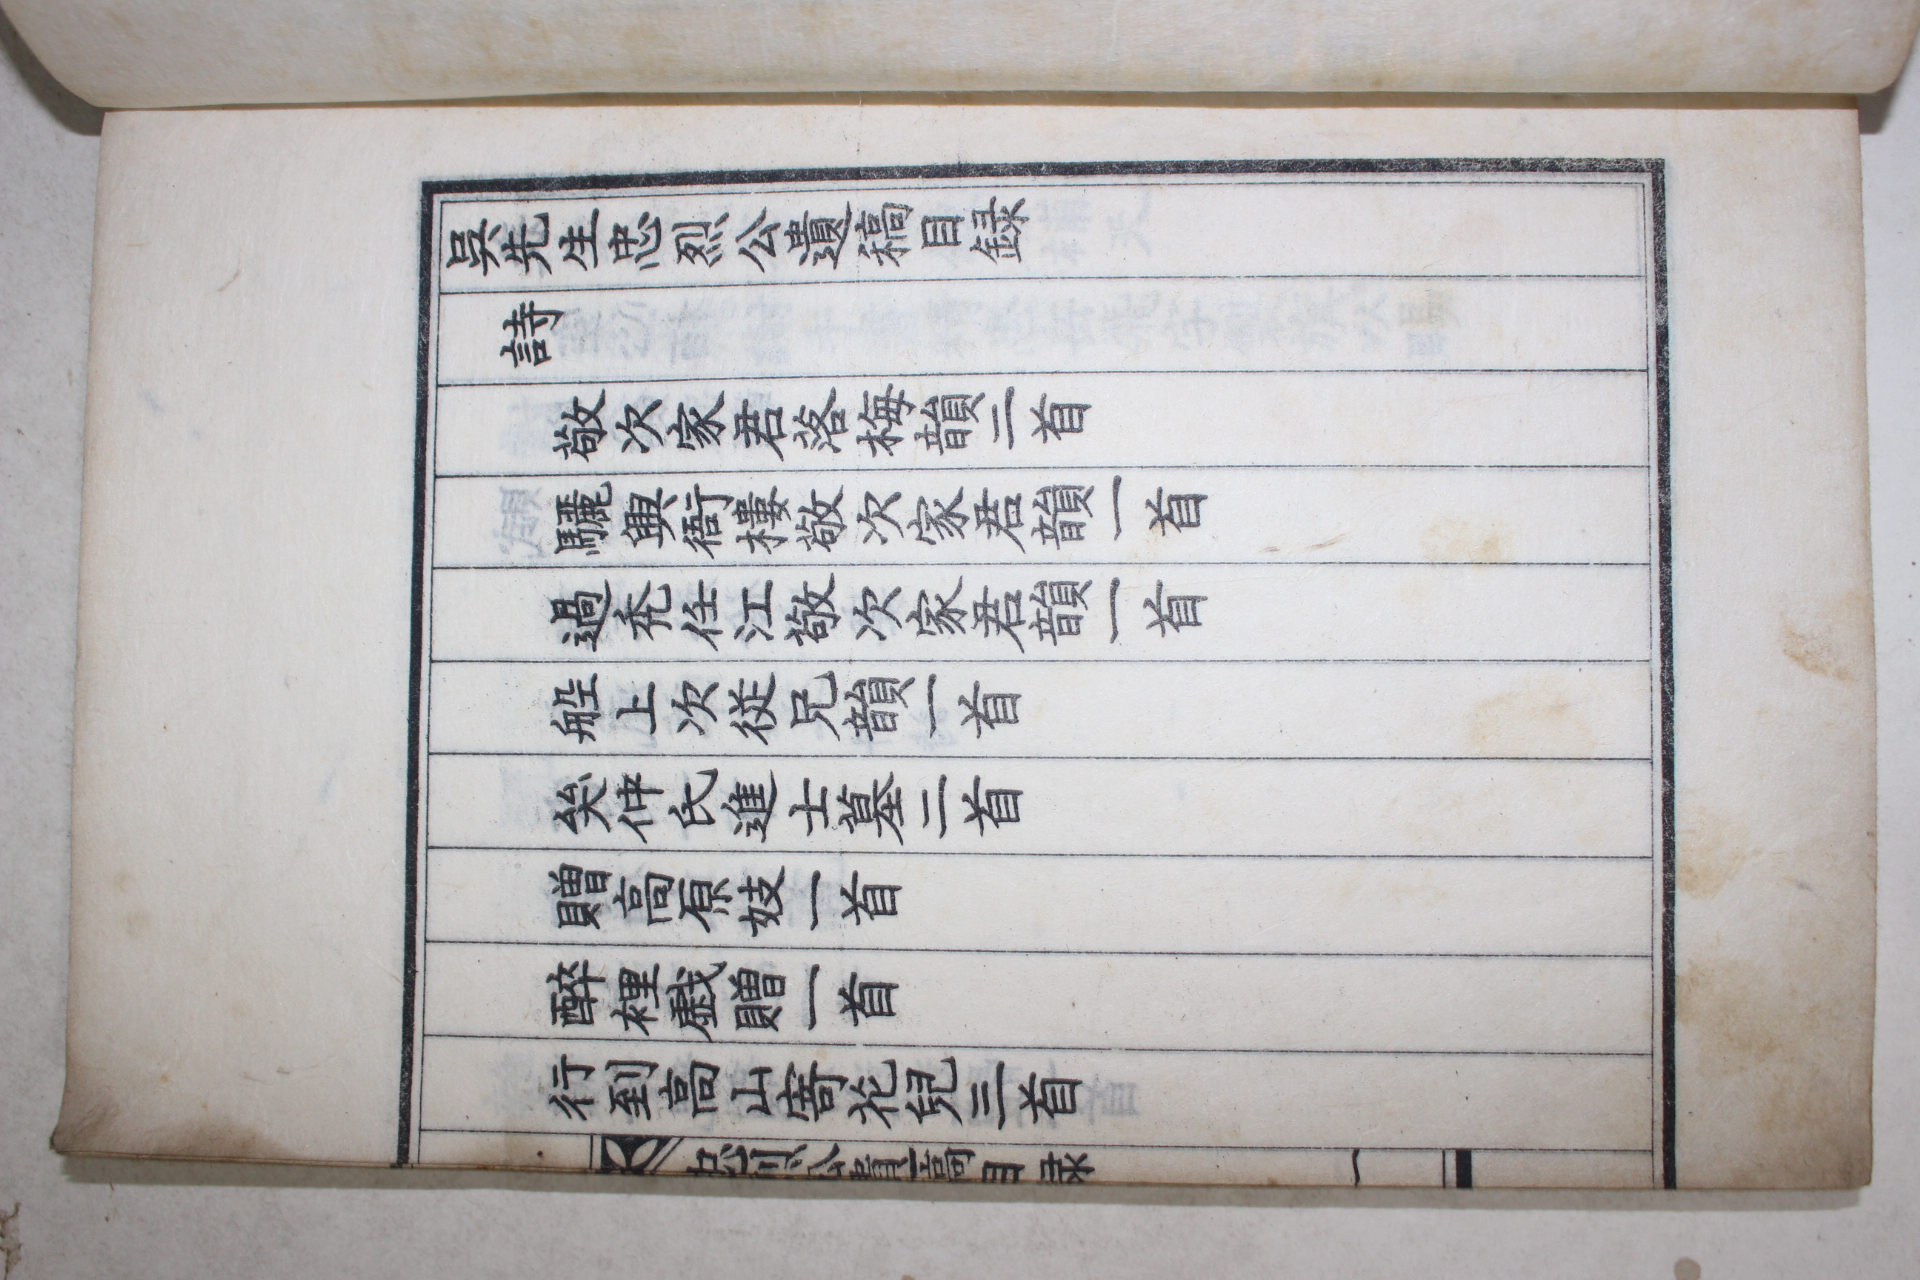 吳先生忠烈公遺稿目録
詩
敬次家君落梅韻二首
驪興衙樓敬次家君韻一首
過禿任江敬次家君韻一首
船上次從兄韻一首
矣仲氏進士墓二首
贈高原妓一首
醉裡戱贈一首
行到高山寄花兒三首
忠烈公遺稿目录 一